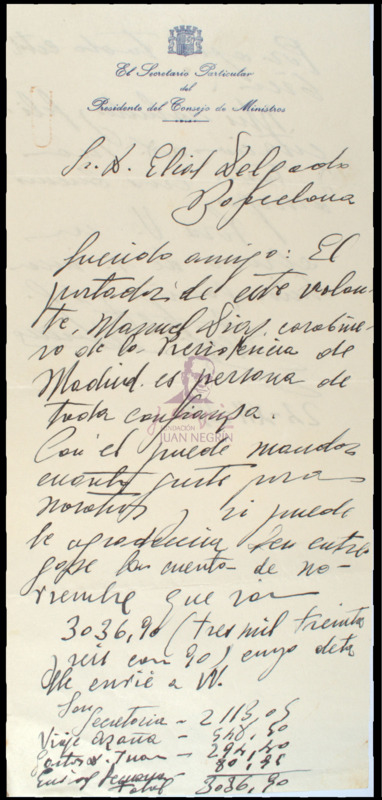 El Secretario Particular
del
Presidente del Consejo de Ministros
Sr. D. Eliod Delgado
Barcelona
Querido amigo: El
portador de este volan-
te, Manuel Diaz, carabine-
ro de la Presidencia de
Madrid es persona de
toda confianza.
FUNDACIÓN
JUAN NEGRÍN
Con el puede mandar
cuanto guste para
nosotros y si puede
le agradeceria
las cuentas de no-
viembre que son
3036,90 (tres mil treinta
y seis con 90) cuyo deta
lle envié a V.
Son
Secretaria - 2113,05
Viaje Azaña - 548,50
Gastos D. Juan - 294,40
80,95
Total 3036,90